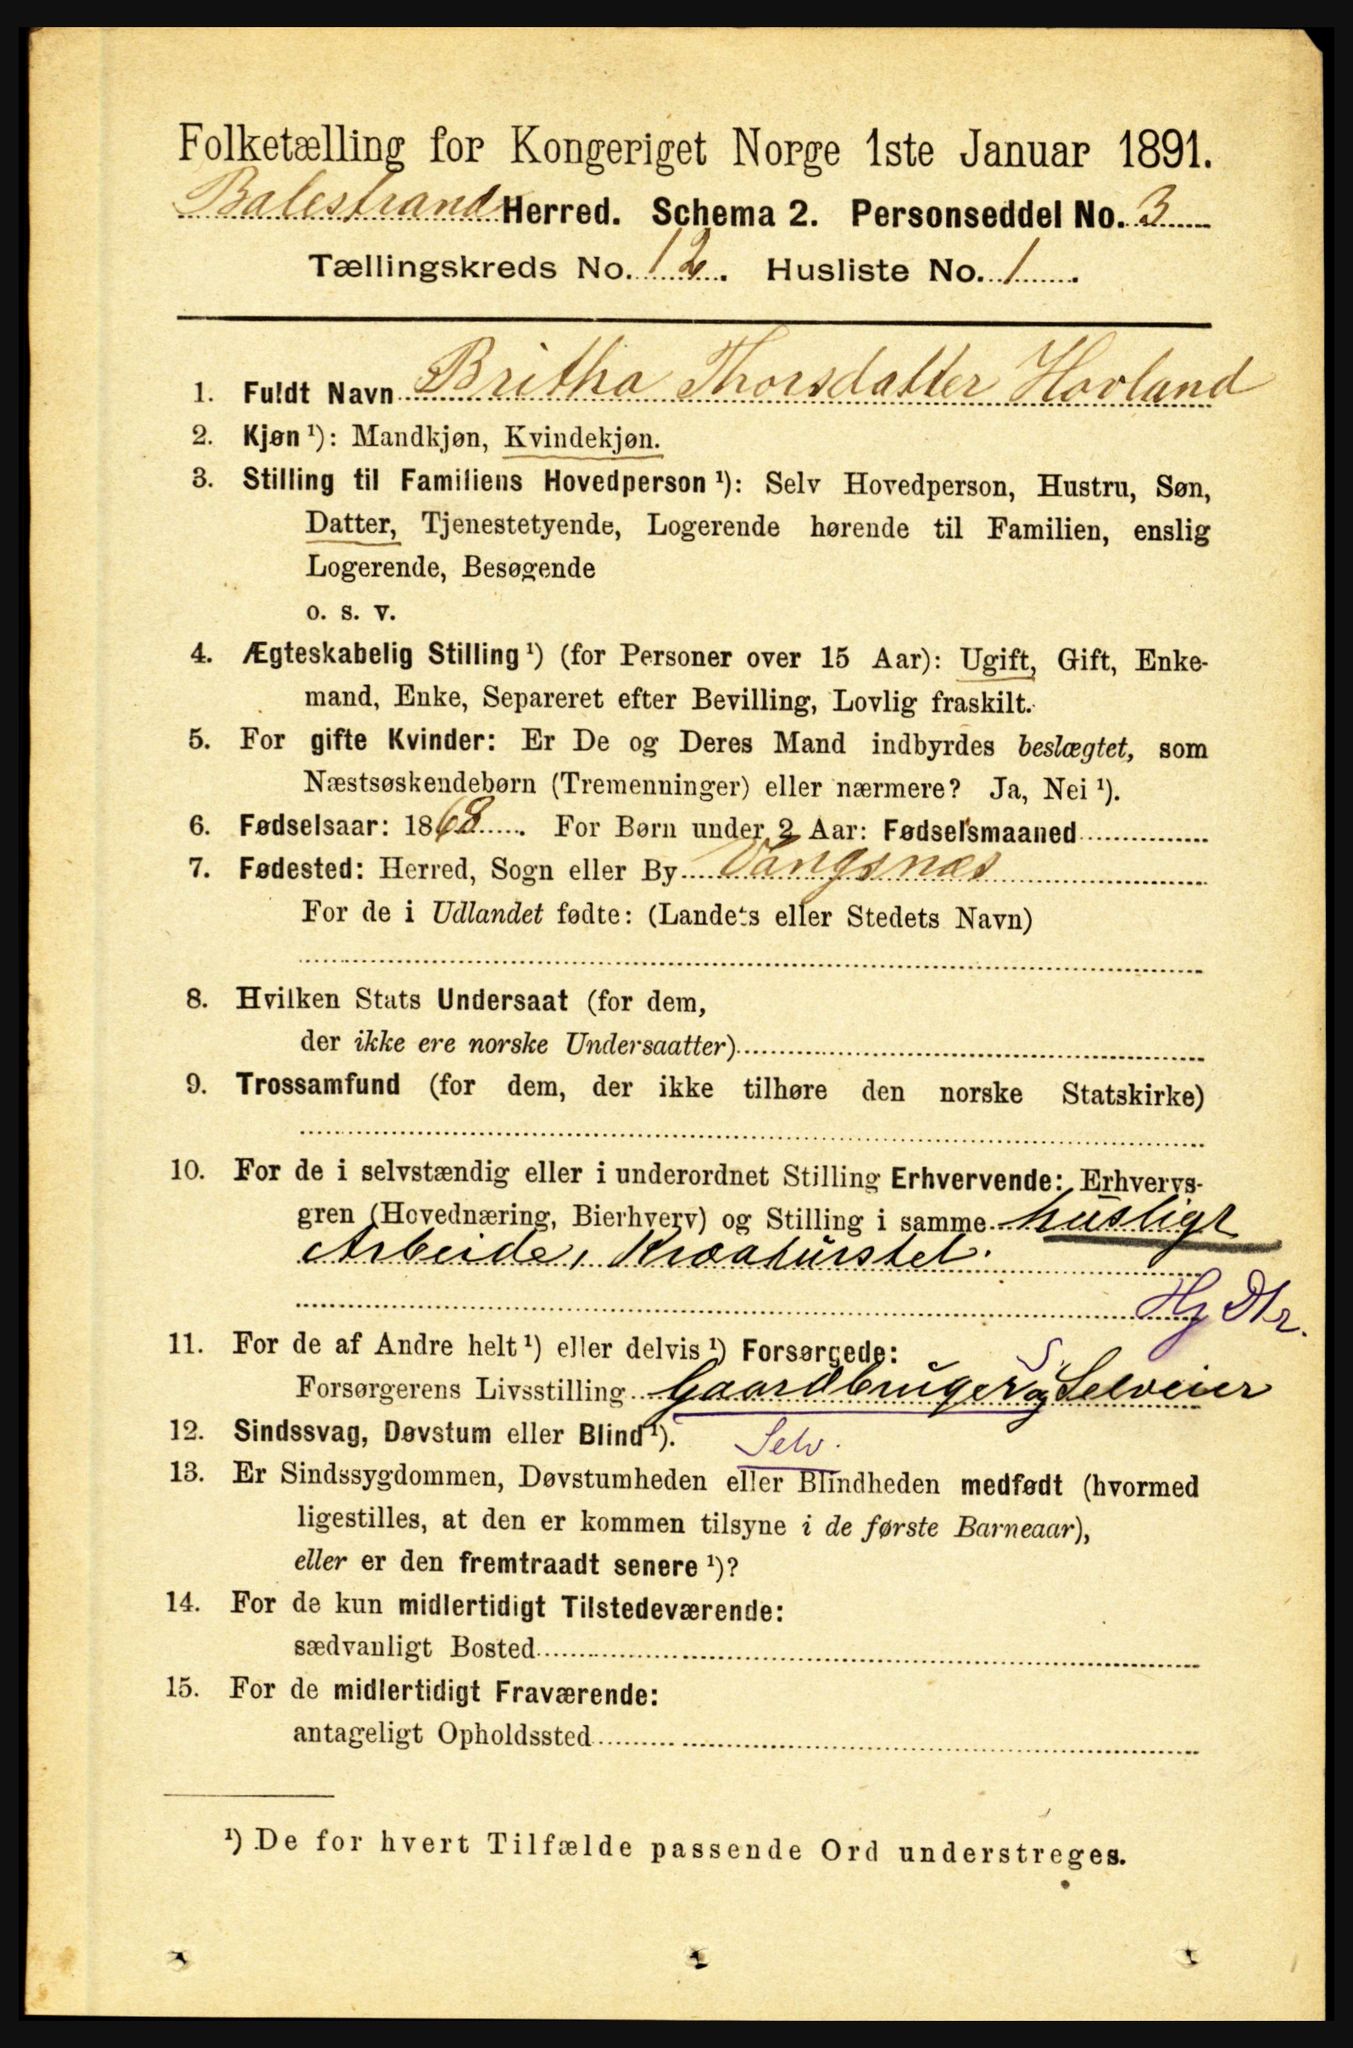 Folketælling for Kongeriget Norge 1ste Januar 1891.
Balestrand Herred. Schema 2. Personseddel No. 3
Tællingskreds No. 12. Husliste No. 1.
1. Fuldt Navn Britha Thorsdatter Hovland
2. Kjøn ¹): Mandkjøn, Kvindekjøn.
3. Stilling til Familiens Hovedperson ¹): Selv Hovedperson, Hustru, Søn,
Datter, Tjenestetyende, Logerende hørende til Familien, enslig
Logerende, Besøgende
o. s. v.
4. Ægteskabelig Stilling ¹) (for Personer over 15 Aar): Ugift, Gift, Enke-
mand, Enke, Separeret efter Bevilling, Lovlig fraskilt.
5. For gifte Kvinder: Er De og Deres Mand indbyrdes beslægtet, som
Næstsøskendebørn (Tremenninger) eller nærmere? Ja, Nei ¹).
6. Fødselsaar: 1868. For Børn under 2 Aar: Fødselsmaaned
7. Fødested: Herred, Sogn eller By Vangsnæs
For de i Udlandet fødte: (Landets eller Stedets Navn)
8. Hvilken Stats Undersaat (for dem,
der ikke ere norske Undersaatter)
9. Trossamfund (for dem, der ikke tilhøre den norske Statskirke)
10. For de i selvstændig eller i underordnet Stilling Erhvervende: Erhvervs-
gren (Hovednæring, Bierhverv) og Stilling i samme husligt
Arbeide, Kræaturstel.
Hg Dtr.
11. For de af Andre helt ¹) eller delvis ¹) Forsørgede:
S.
Forsørgerens Livsstilling Gaardbruger og Selveier
12. Sindssvag, Døvstum eller Blind ¹). Selv.
13. Er Sindssygdommen, Døvstumheden eller Blindheden medfødt (hvormed
ligestilles, at den er kommen tilsyne i de første Barneaar),
eller er den fremtraadt senere ¹)?
14. For de kun midlertidigt Tilstedeværende:
sædvanligt Bosted
15. For de midlertidigt Fraværende:
antageligt Opholdssted
¹) De for hvert Tilfælde passende Ord understreges.